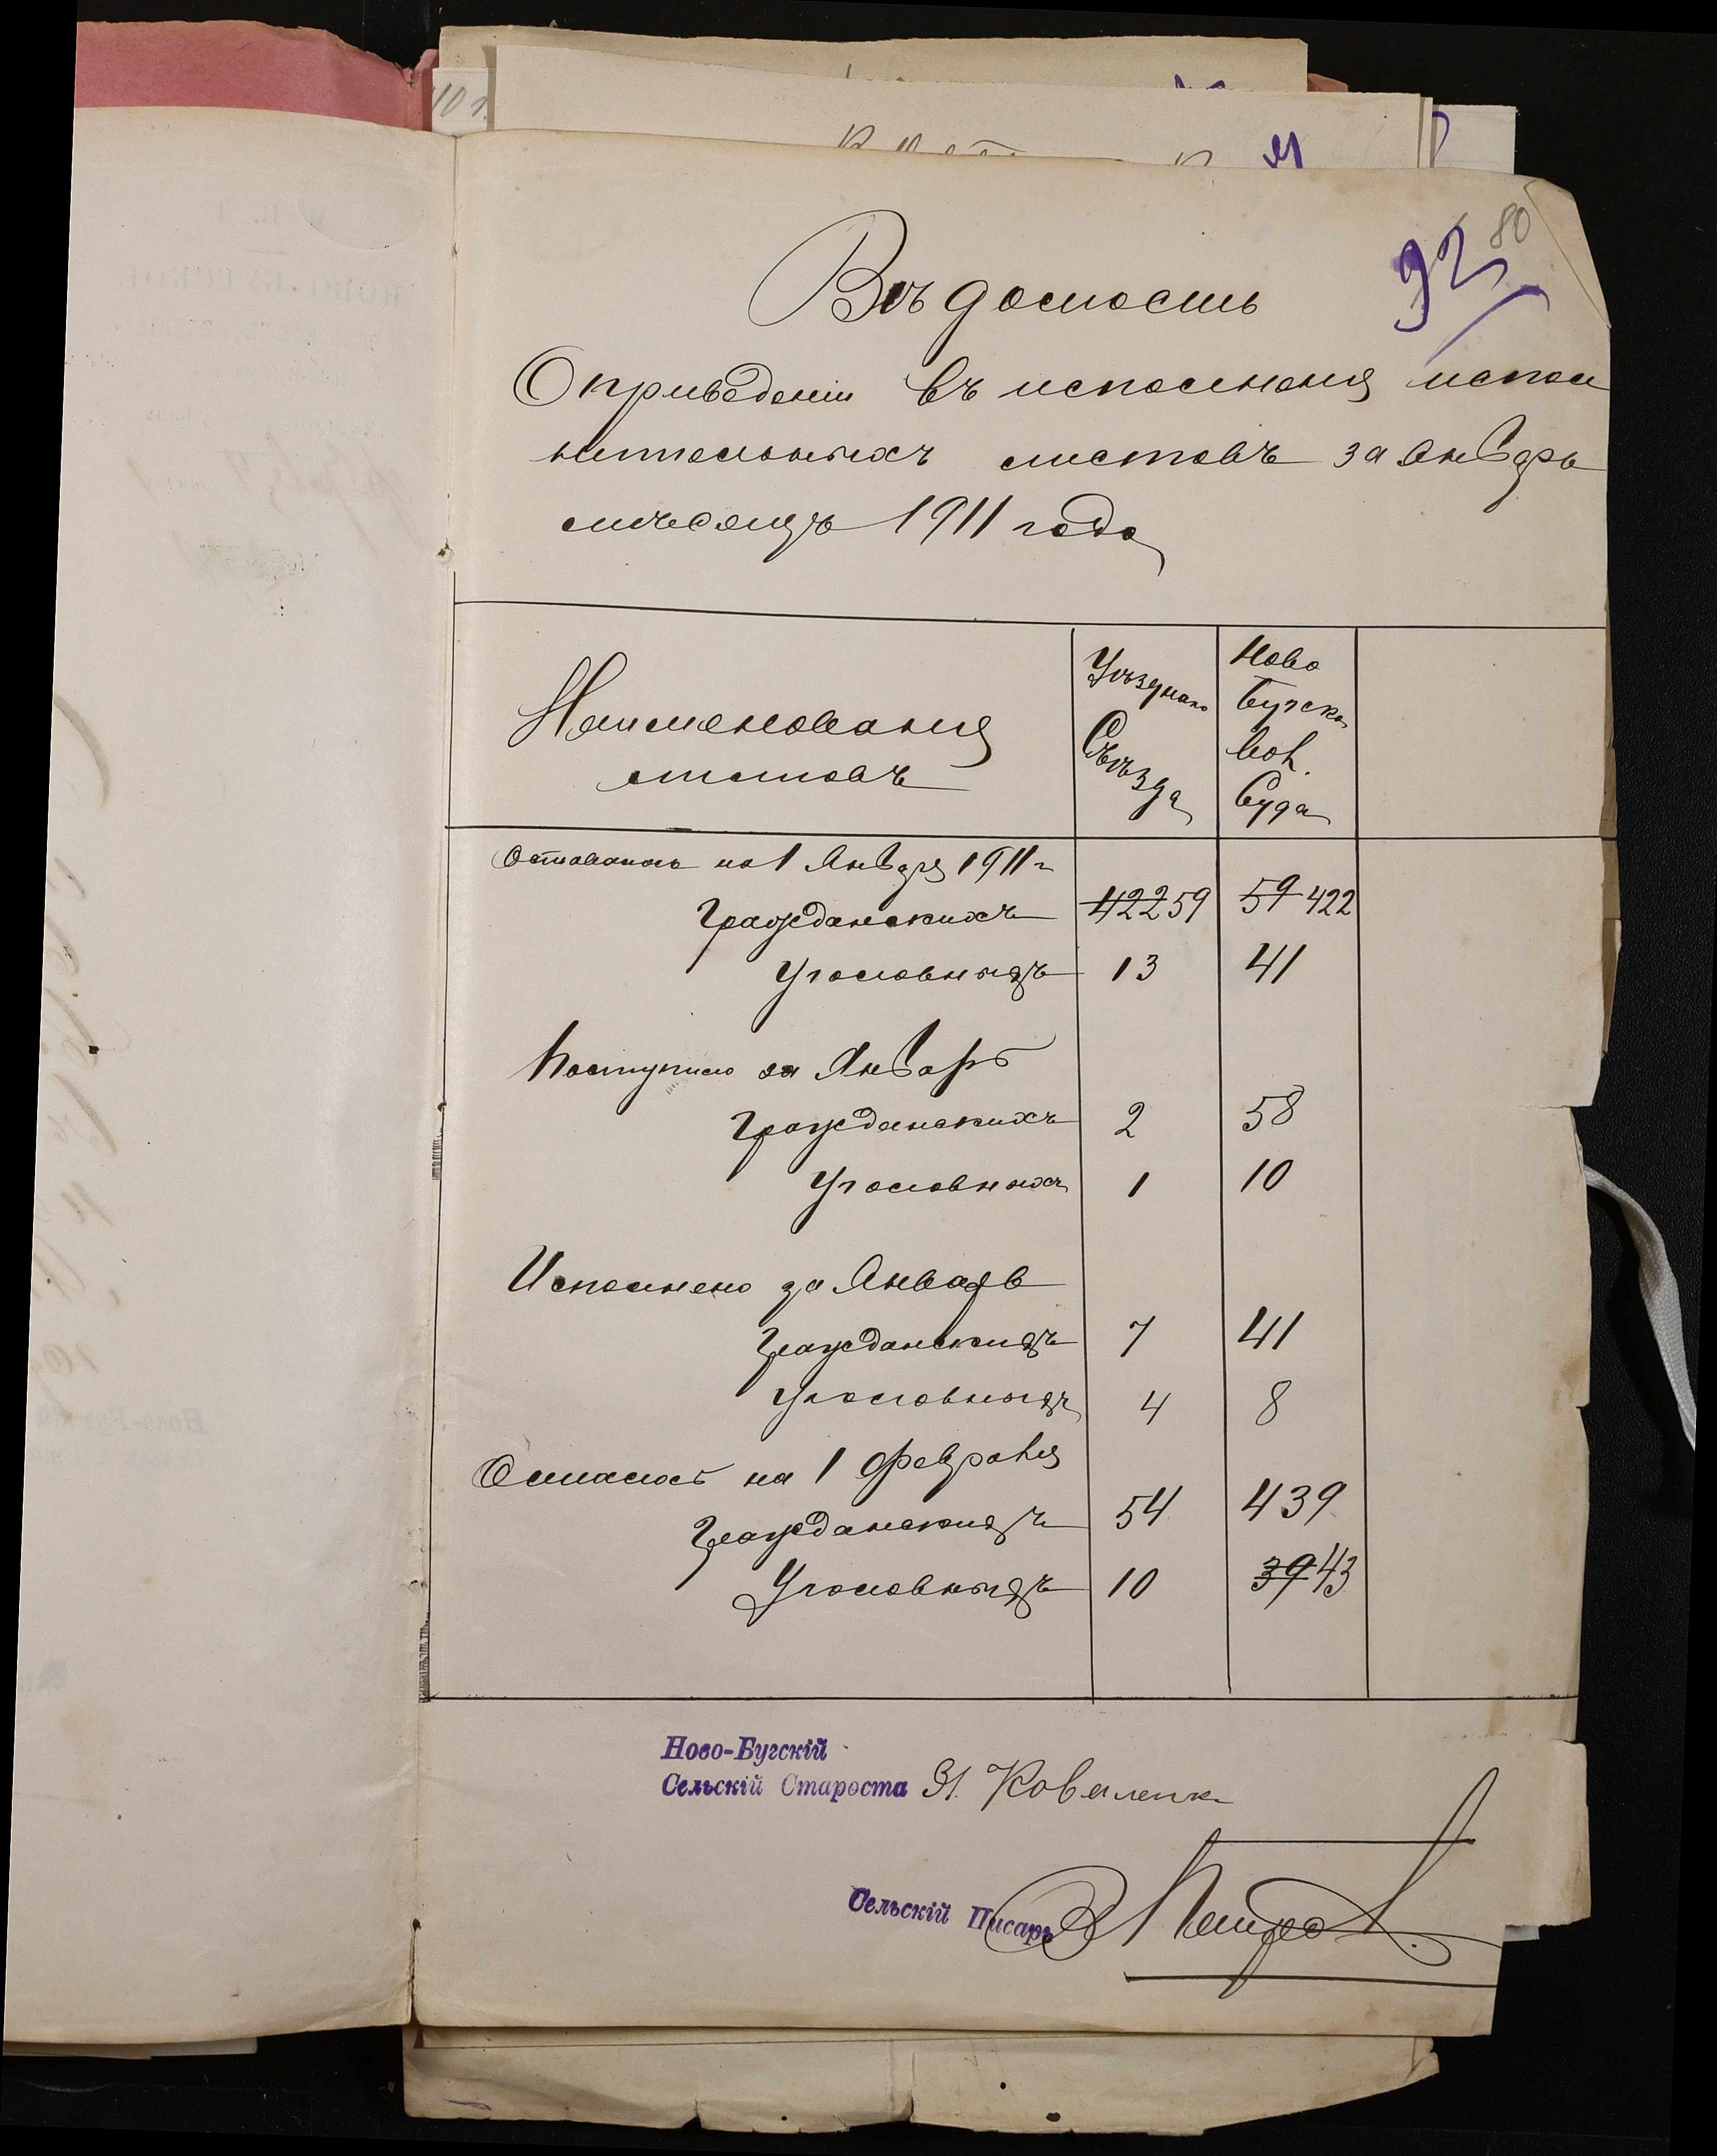 80
92
Вѣдомость
О приведеніи въ исполненія испол
нительныхъ листовъ за Январь
мѣсяцъ 1911 года
Наименованія листовъ
Уѣзднаго Съѣзда
Ново Бугска. Вол. Суда
Оставалось на 1 Января 1911 г
Гражданскихъ 422 59 59 422
Уголовныхъ 13 41
Поступило за Январь
Гражданскихъ 2 58
Уголовныхъ 1 10
Исполнено за Январь
Гражданскихъ 7 41
Уголовныхъ 4 8
Осталось на 1 Февраля
Гражданскихъ 54 439
Уголовныхъ 10 39 43
Ново-Бугскій
Сельскій Староста И. Коваленк
Сельскій Писарь Петров